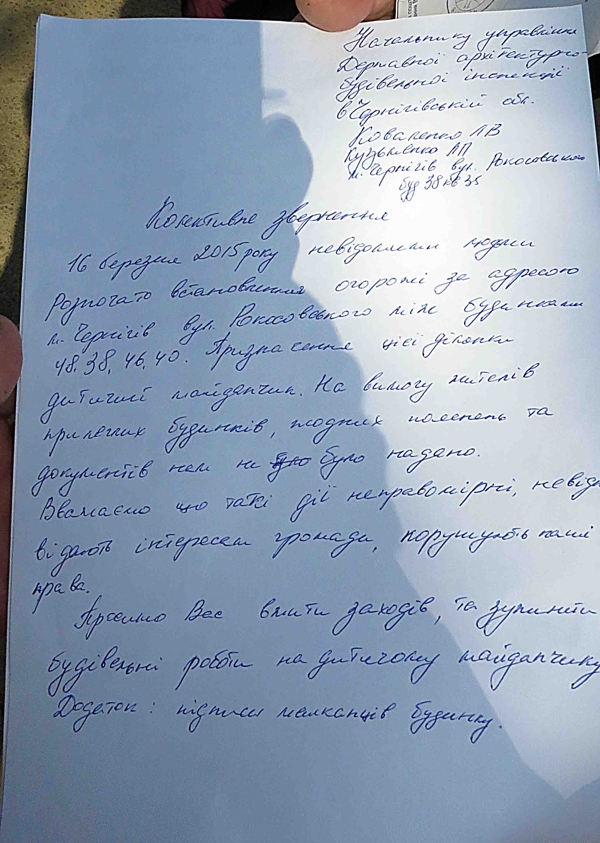 Начальнику управління
Державної архітектурно-
будівельної інспекції
в Чернігівській обл.
Коваленко Л В
Кузьменко Л П
м. Чернігів вул. Рокосовського
буд 38 кв 35
Колективне звернення
16 березня 2015 року невідомими людьми
розпочато встановлення огорожі за адресою
м. Чернігів вул. Рокосовського між будинками
48, 38, 46, 40. Призначення цієї ділянки
дитячий майданчик. На вимогу жителів
прилеглих будинків, жодних пояснень та
документів нам не було надано.
Вважаємо що такі дії неправомірні, невідпо
відають інтересам громади, порушують наші
права.
Просимо Вас вжити заходів, та зупинити
будівельні роботи на дитячому майданчику
Додаток: підписи мешканців будинку.